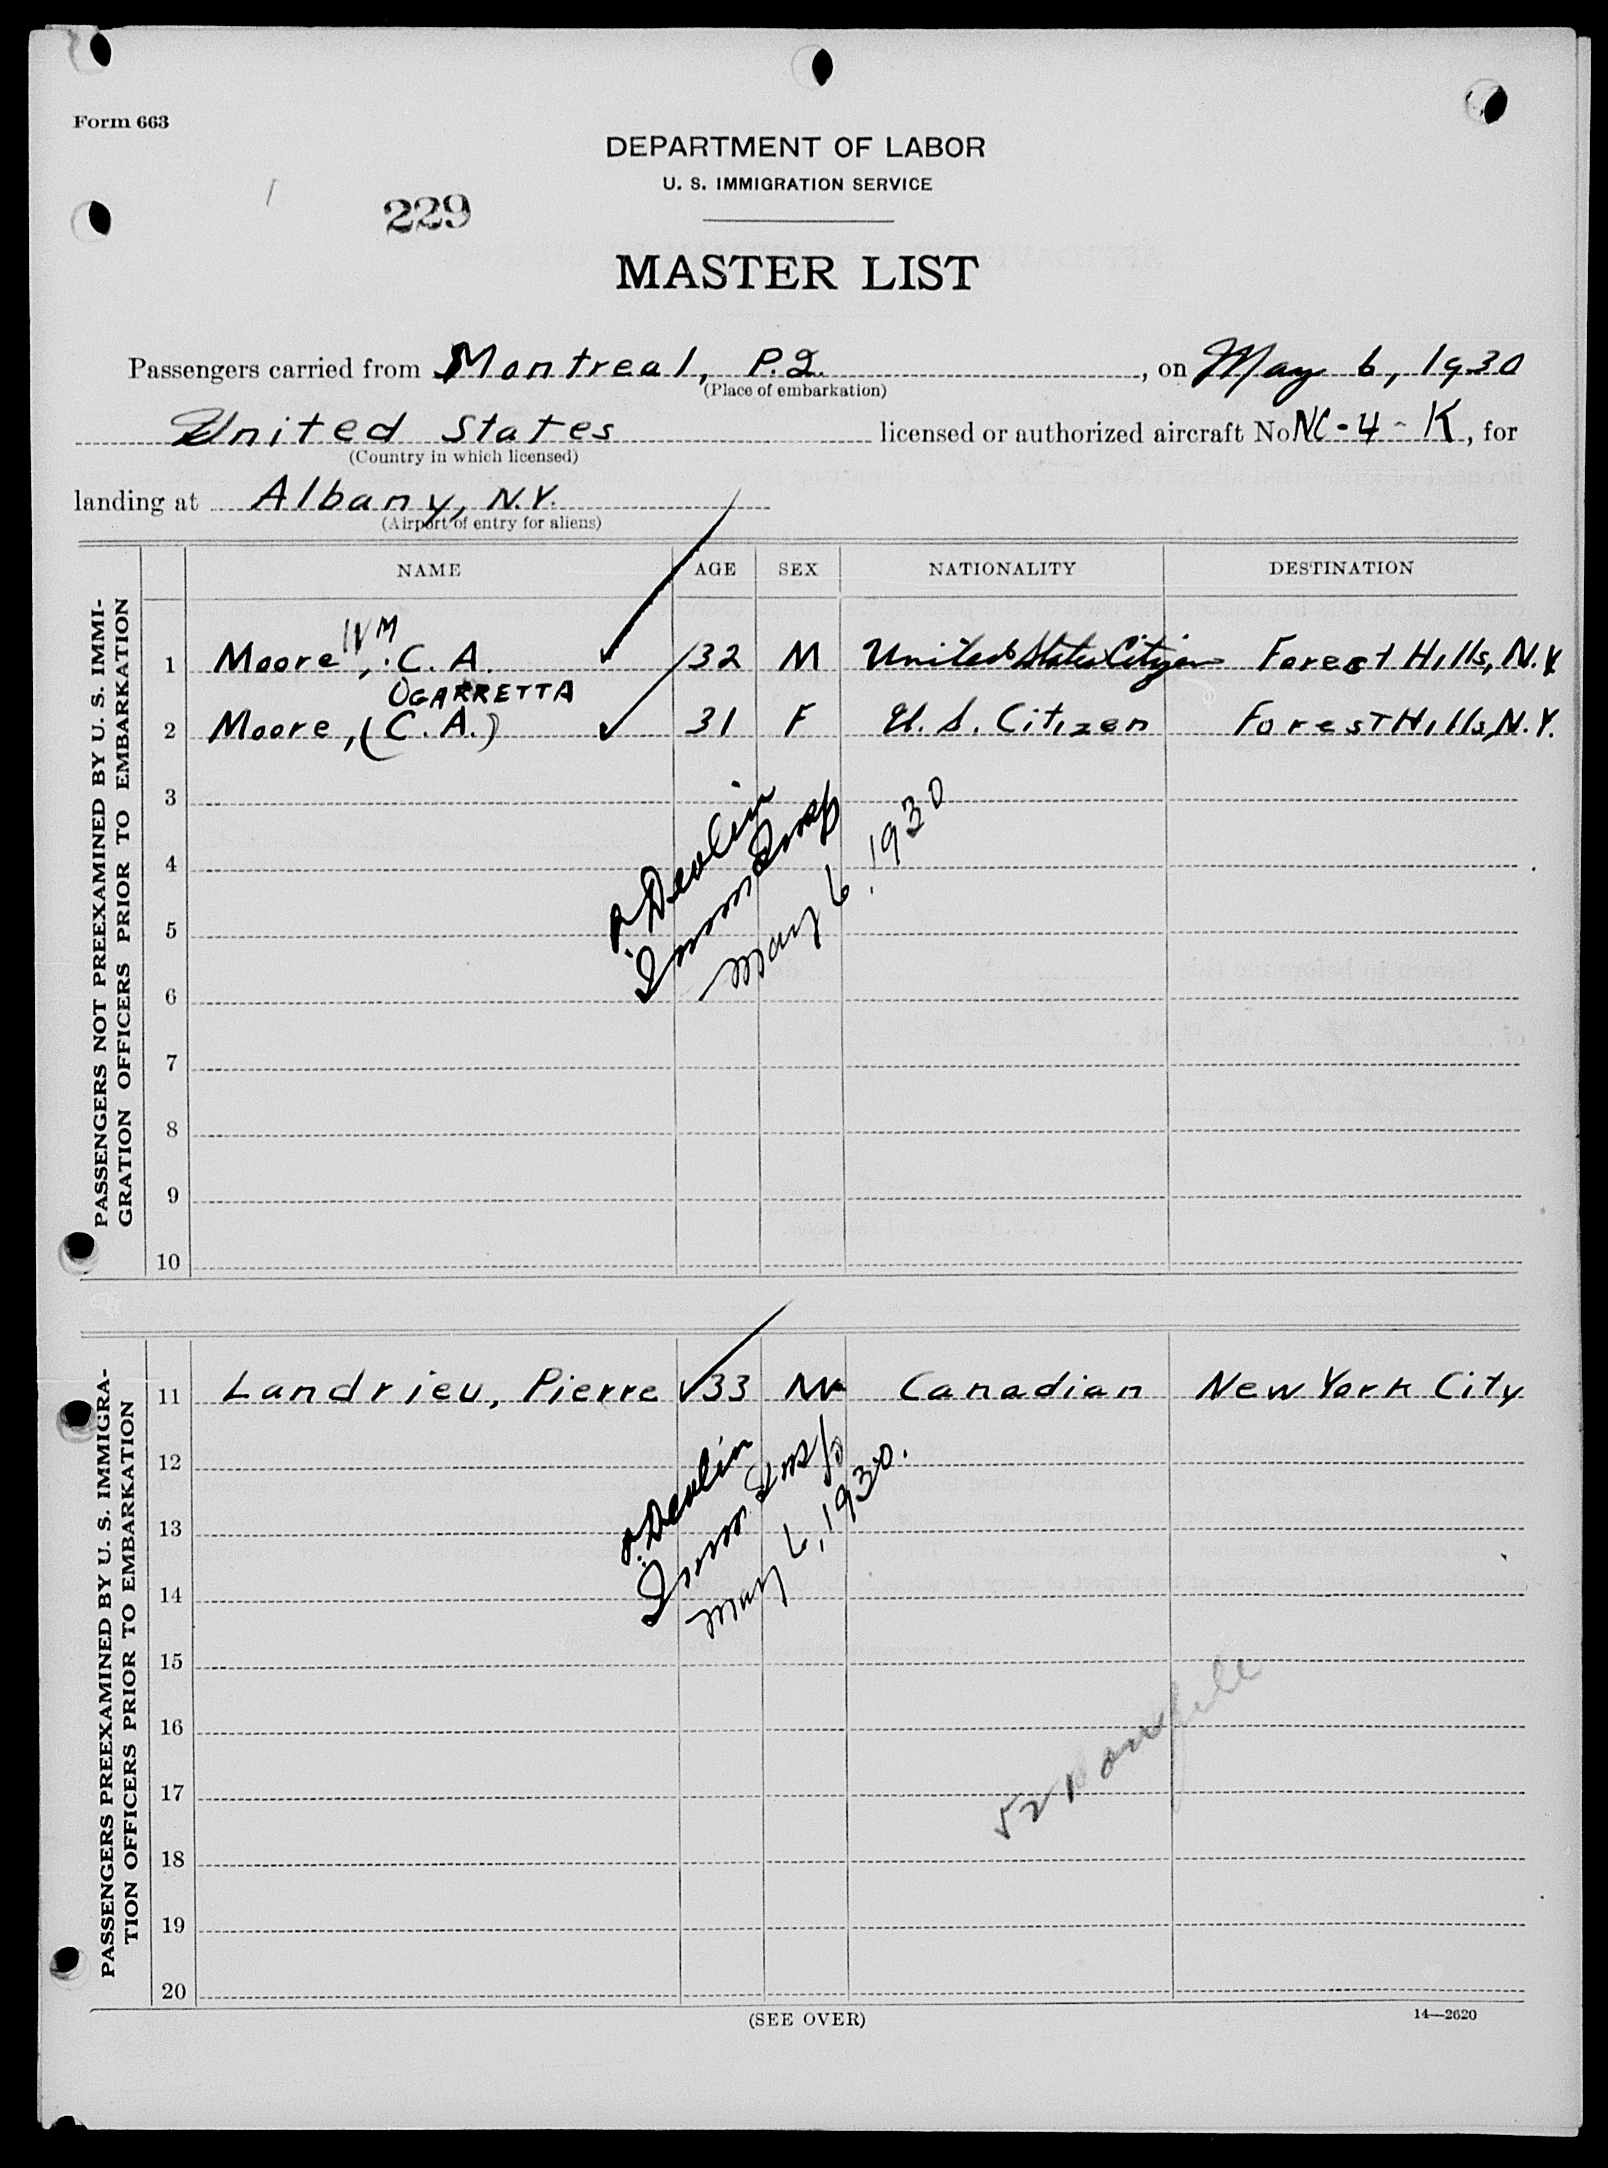 Form 663
DEPARTMENT OF LABOR
U. S. IMMIGRATION SERVICE
229
MASTER LIST
Passengers carried from Montreal, P.Q. , on May 6, 1930
(Place of embarkation)
United States licensed or authorized aircraft No NC-4-K, for
(Country in which licensed)
landing at Albany, N.Y.
(Airport of entry for aliens)
NAME AGE SEX NATIONALITY DESTINATION
PASSENGERS NOT PREEXAMINED BY U. S. IMMI-
GRATION OFFICERS PRIOR TO EMBARKATION
WM
1 Moore, C. A. 32 M United States Citizen Forest Hills, N.Y.
OGARRETTA
2 Moore, (C. A.) 31 F U. S. Citizen Forest Hills, N.Y.
3
4
5
6
7
8
9
10
Devlin
Imm Insp
May 6, 1930
PASSENGERS PREEXAMINED BY U. S. IMMIGRA-
TION OFFICERS PRIOR TO EMBARKATION
11 Landrieu, Pierre 33 M Canadian New York City
12
13
14
15
16
17
18
19
20
Devlin
Imm Insp
May 6, 1930.
52
(SEE OVER)
14—2620